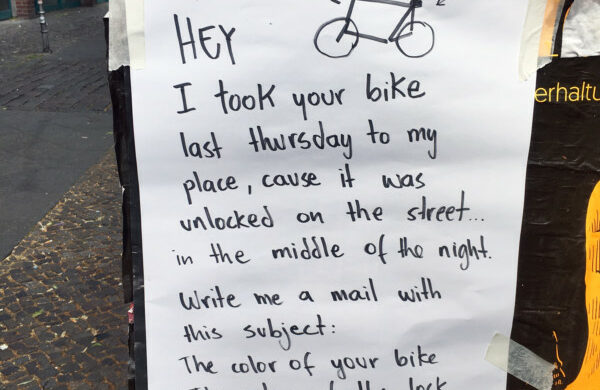 HEY
I took your bike
last thursday to my
place, cause it was
unlocked on the street...
in the middle of the night.
Write me a mail with
this subject:
The color of your bike
lock
erhaltu